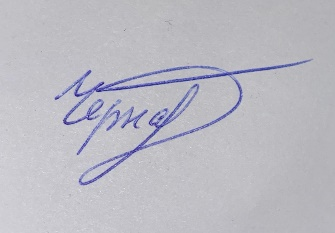 Чернав